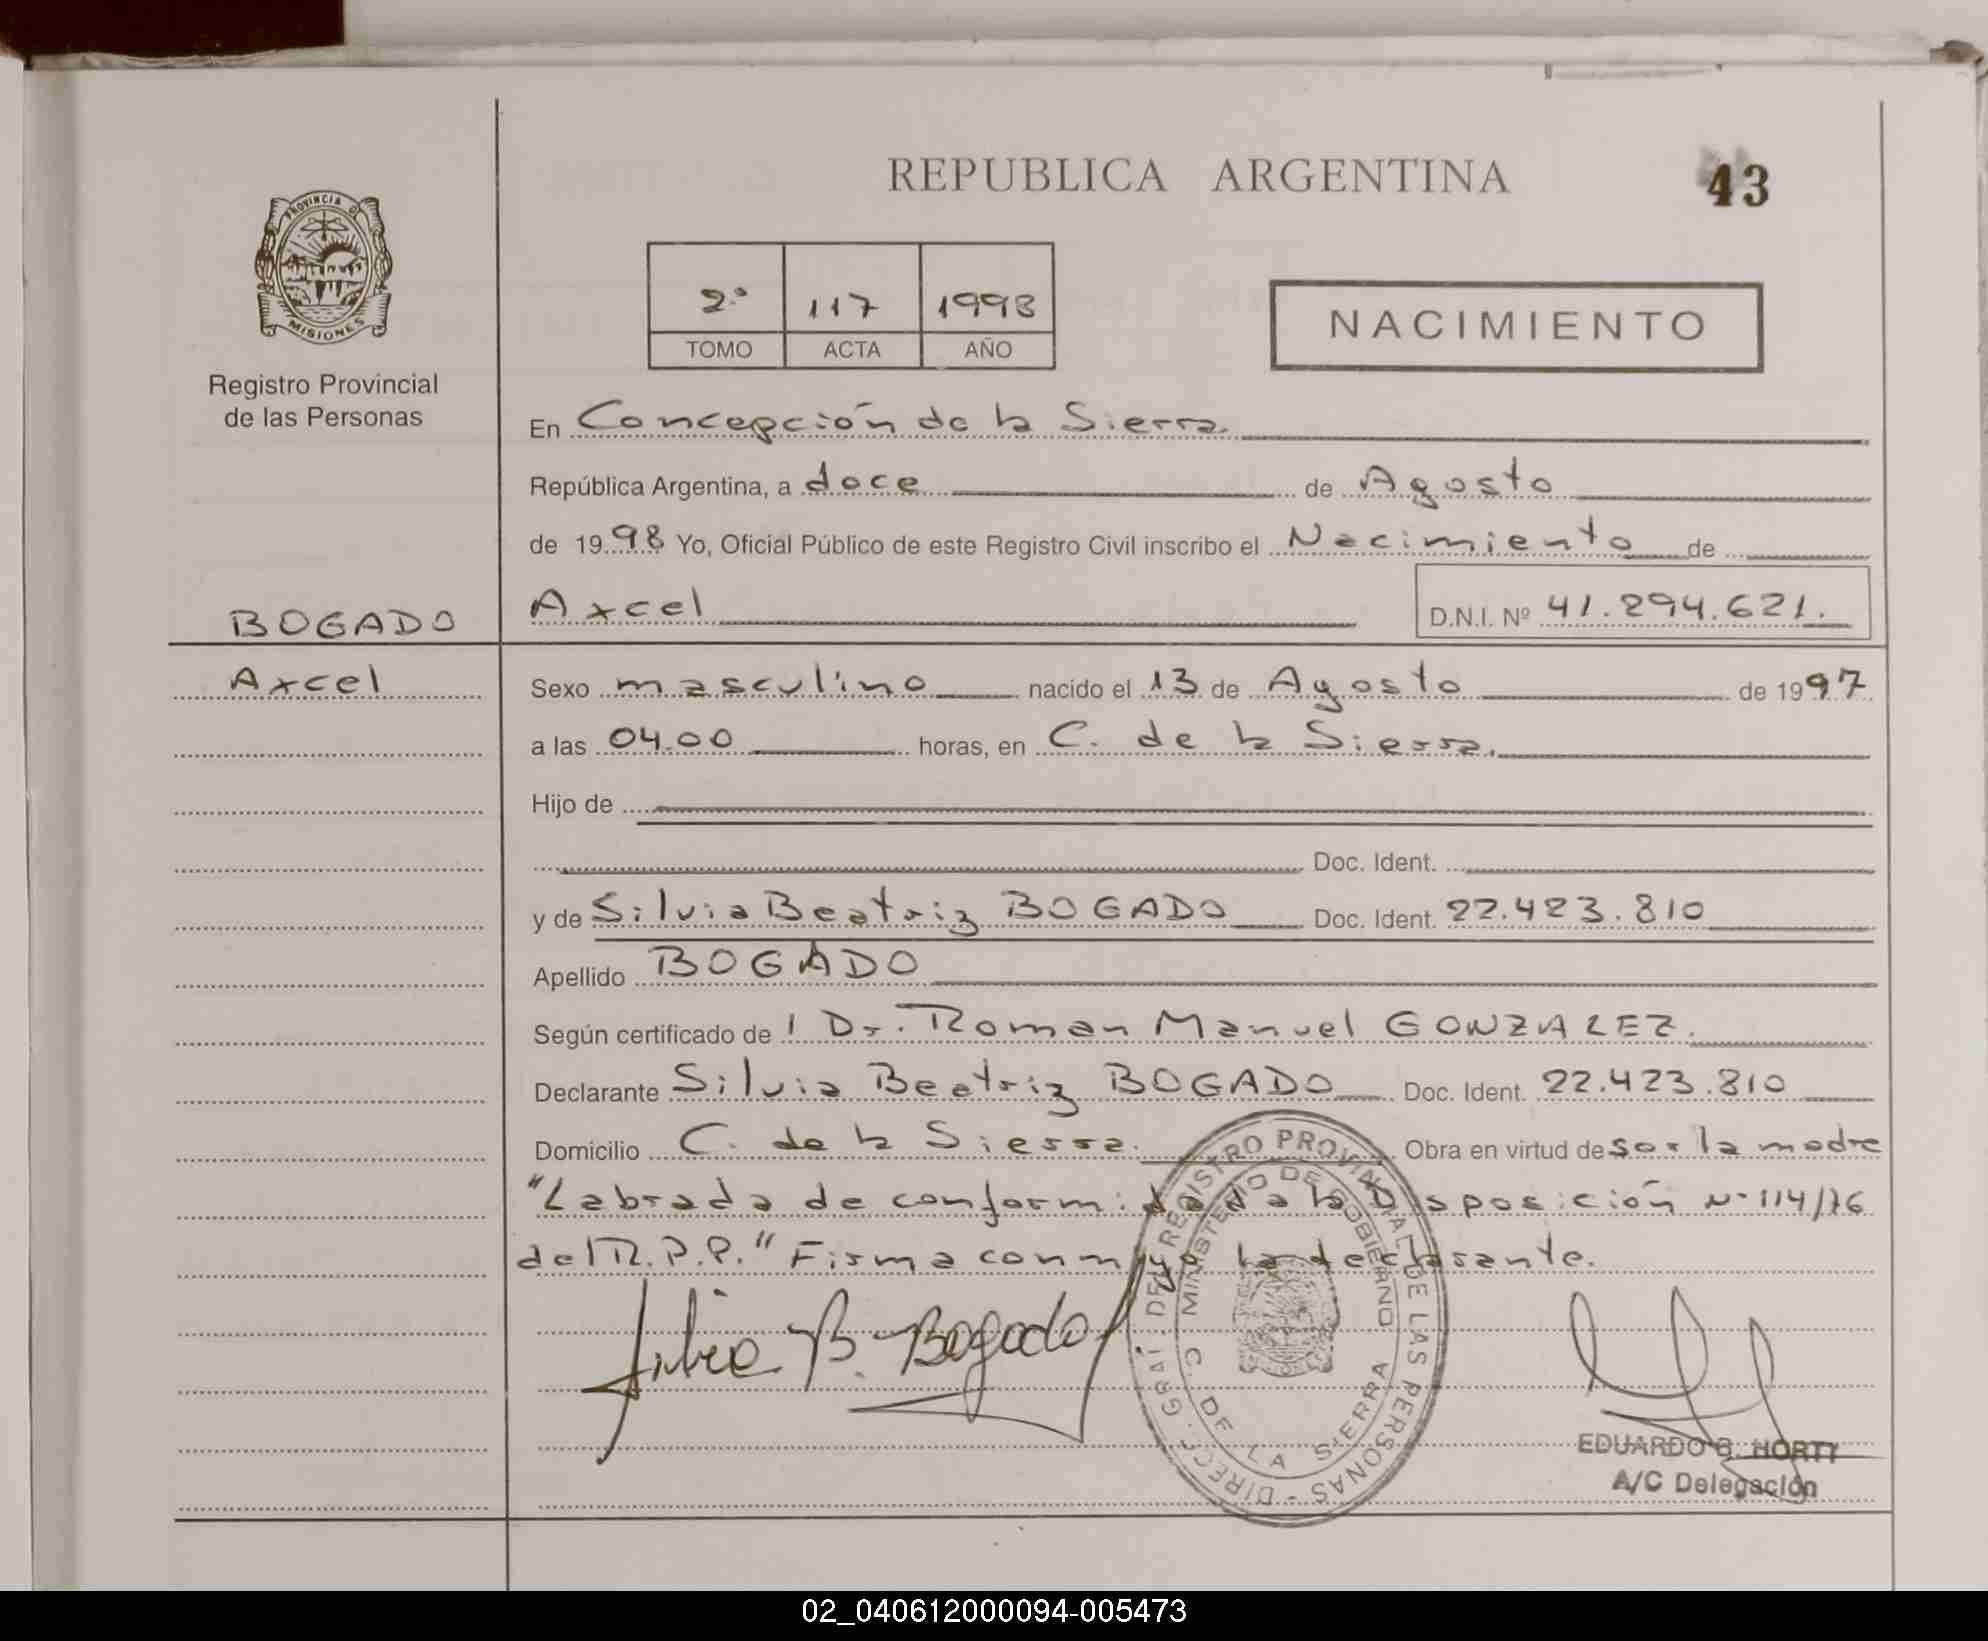 REPUBLICA ARGENTINA
43
PROVINCIA DE
MISIONES
Registro Provincial
de las Personas
2º 117 1998
TOMO ACTA AÑO
NACIMIENTO
En Concepción de la Sierra.
República Argentina, a doce de Agosto
de 1998 Yo, Oficial Público de este Registro Civil inscribo el Nacimiento de
BOGADO
Axcel D.N.I. Nº 41.294.621.
Axcel
Sexo masculino nacido el 13 de Agosto de 1997
a las 04.00 horas, en C. de la Sierra.
Hijo de
Doc. Ident.
y de Silvia Beatriz BOGADO Doc. Ident. 22.423.810
Apellido BOGADO
Según certificado de l Dr. Roman Manuel GONZALEZ.
Declarante Silvia Beatriz BOGADO Doc. Ident. 22.423.810
Domicilio C. de la Sierra. Obra en virtud de ser la madre
"Labrada de conformidad a la Disposición Nº 114/76
del R.P.P." Firma conmigo la declarante.
Silvia B. Bogado
DIRECC. GRAL. DEL REGISTRO PROVINCIAL DE LAS PERSONAS -
MINISTERIO DE GOBIERNO
C. DE LA SIERRA
EDUARDO B. HORTT
A/C Delegación
02_040612000094-005473